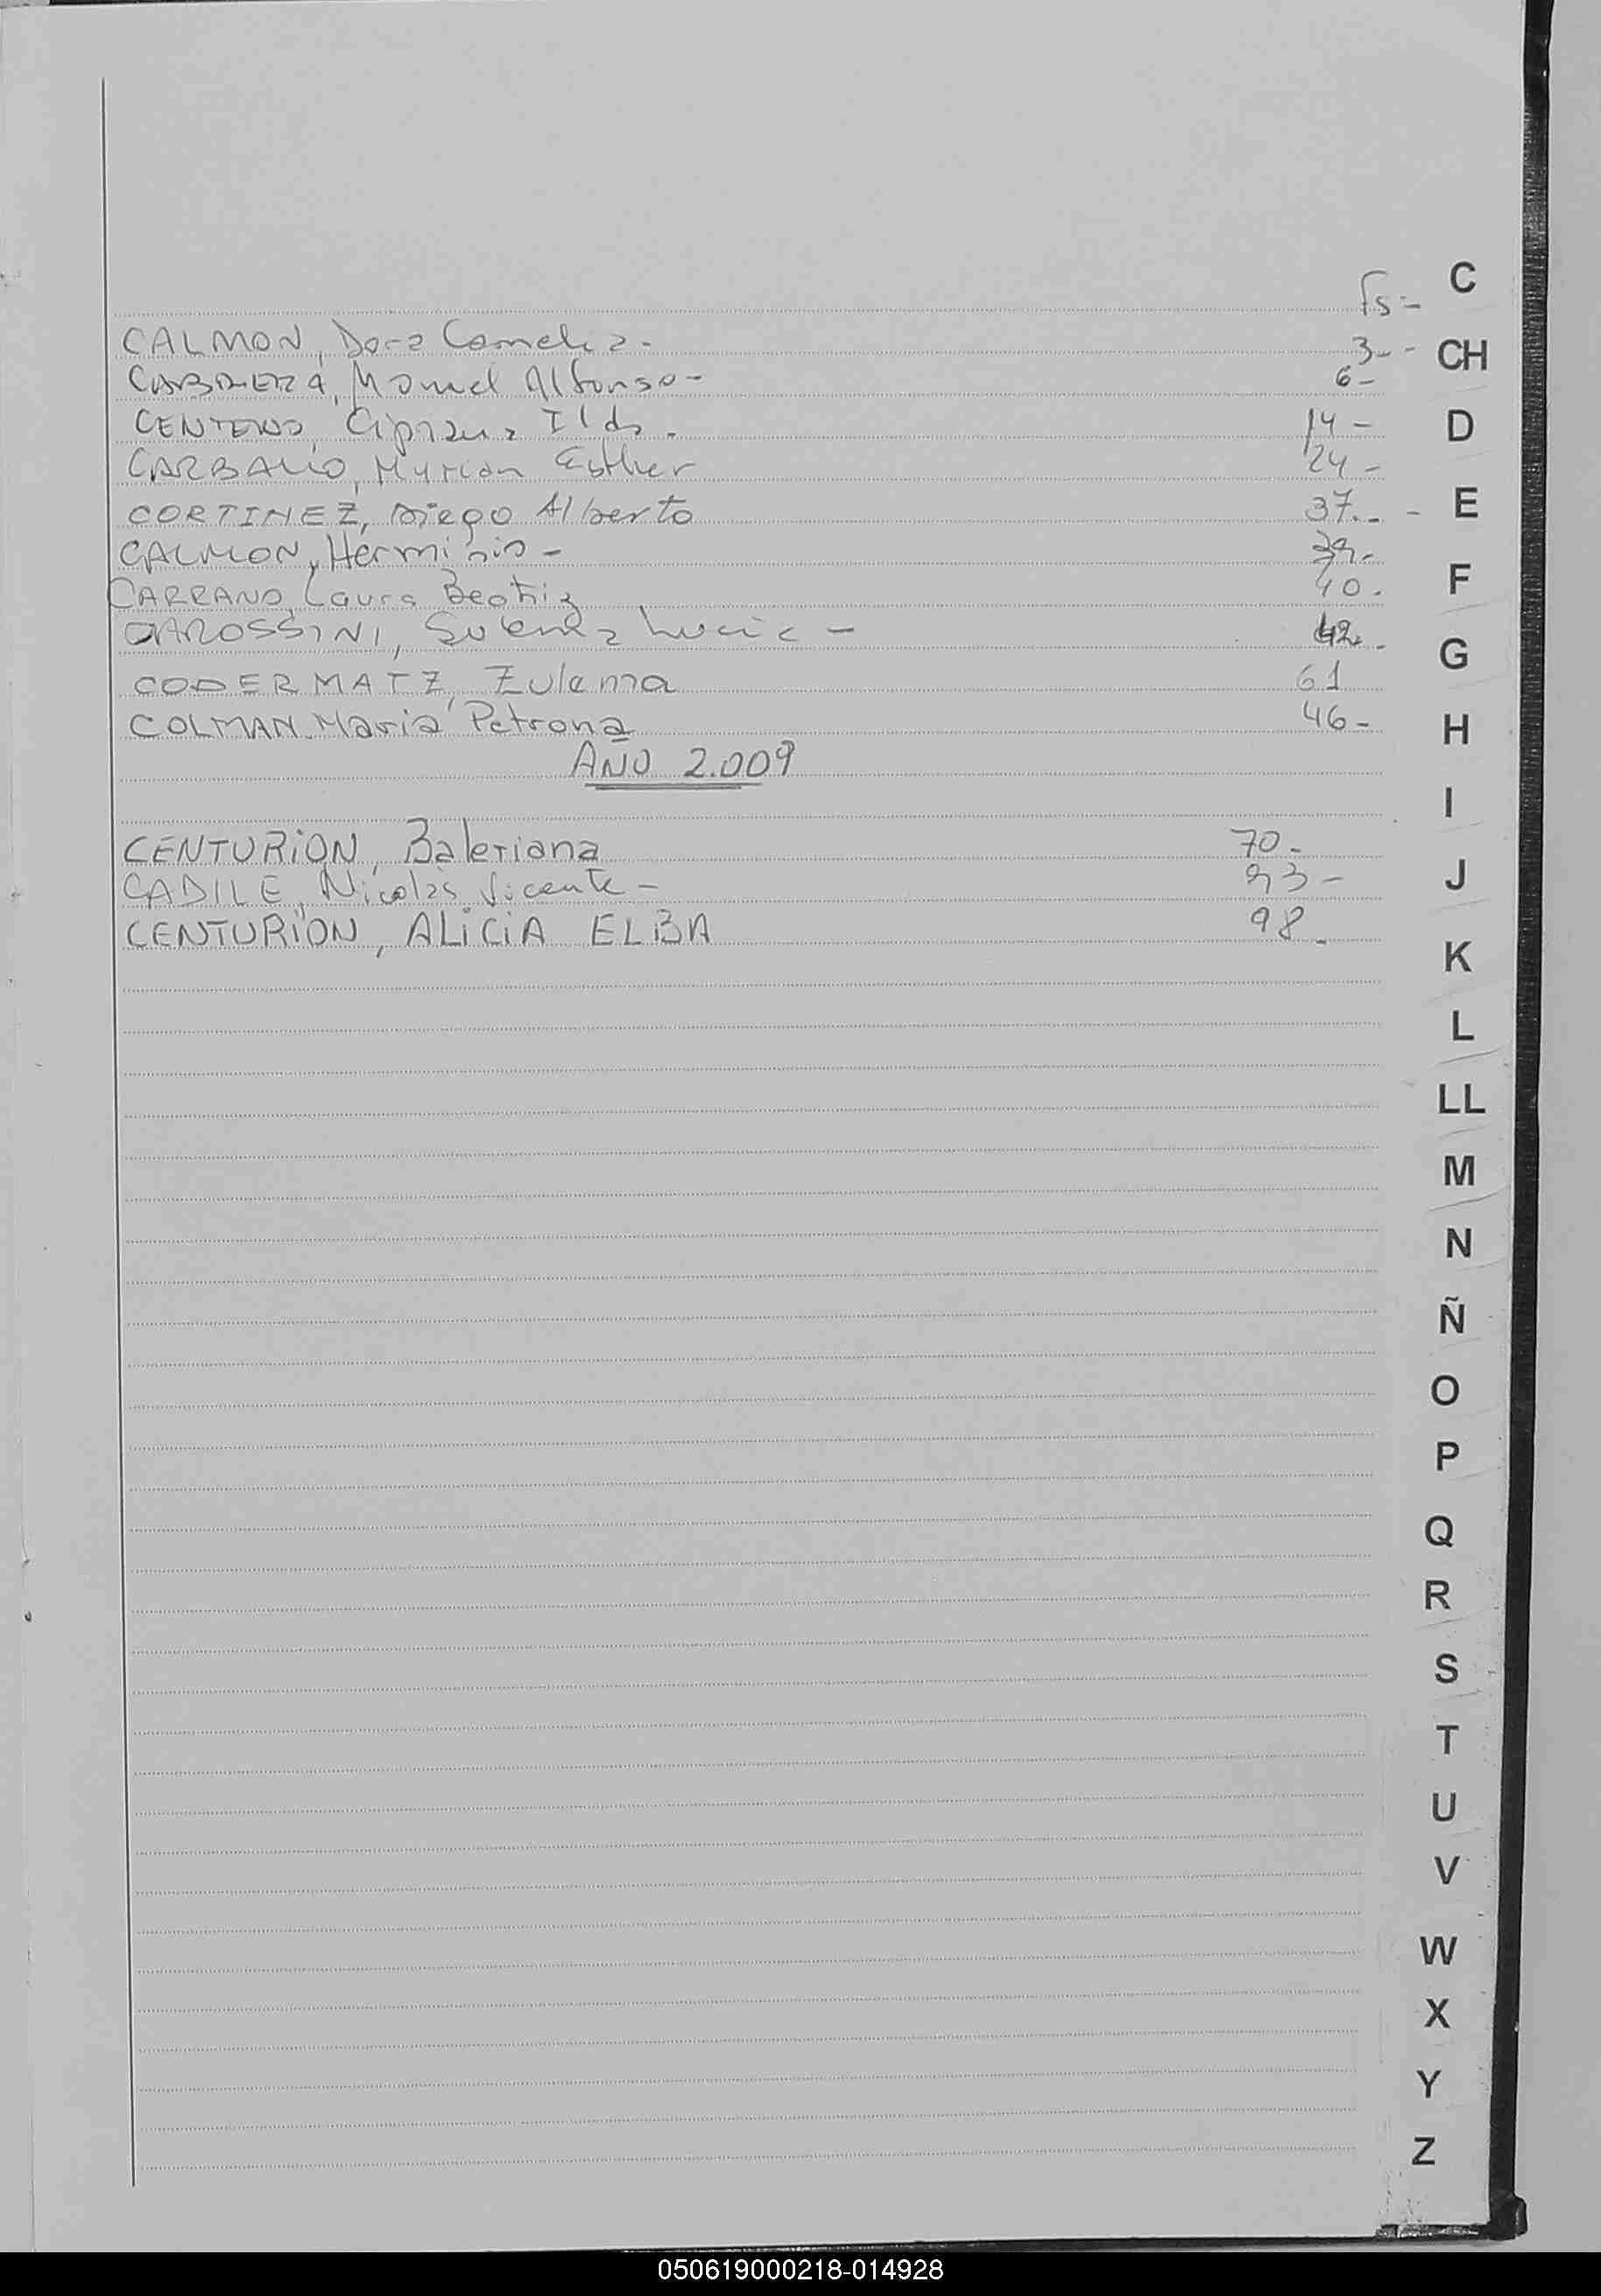 Fs-
C
CALMON, Dora Camelia- 3-- CH
CABRERA, Manuel Alfonso- 6-
CENTENO, Cipriana Ilda. 14- D
CARBALLO, Myrian Esther 24-
CORTINEZ, Diego Alberto 37.- - E
CALMON, Herminio- 39-
CARRANO, Laura Beatriz 40. F
CAROSSINI, Lucia- 42.-
G
CODERMATZ, Zulema 61
COLMAN. Maria Petrona 46- H
AÑO 2.009
I
CENTURiON, Baleriana 70-
CADILE, Nicolás Vicente- 93- J
CENTURiON, ALiCiA ELBA 98-
K
L
LL
M
N
Ñ
O
P
Q
R
S
T
U
V
W
X
Y
Z
050619000218-014928